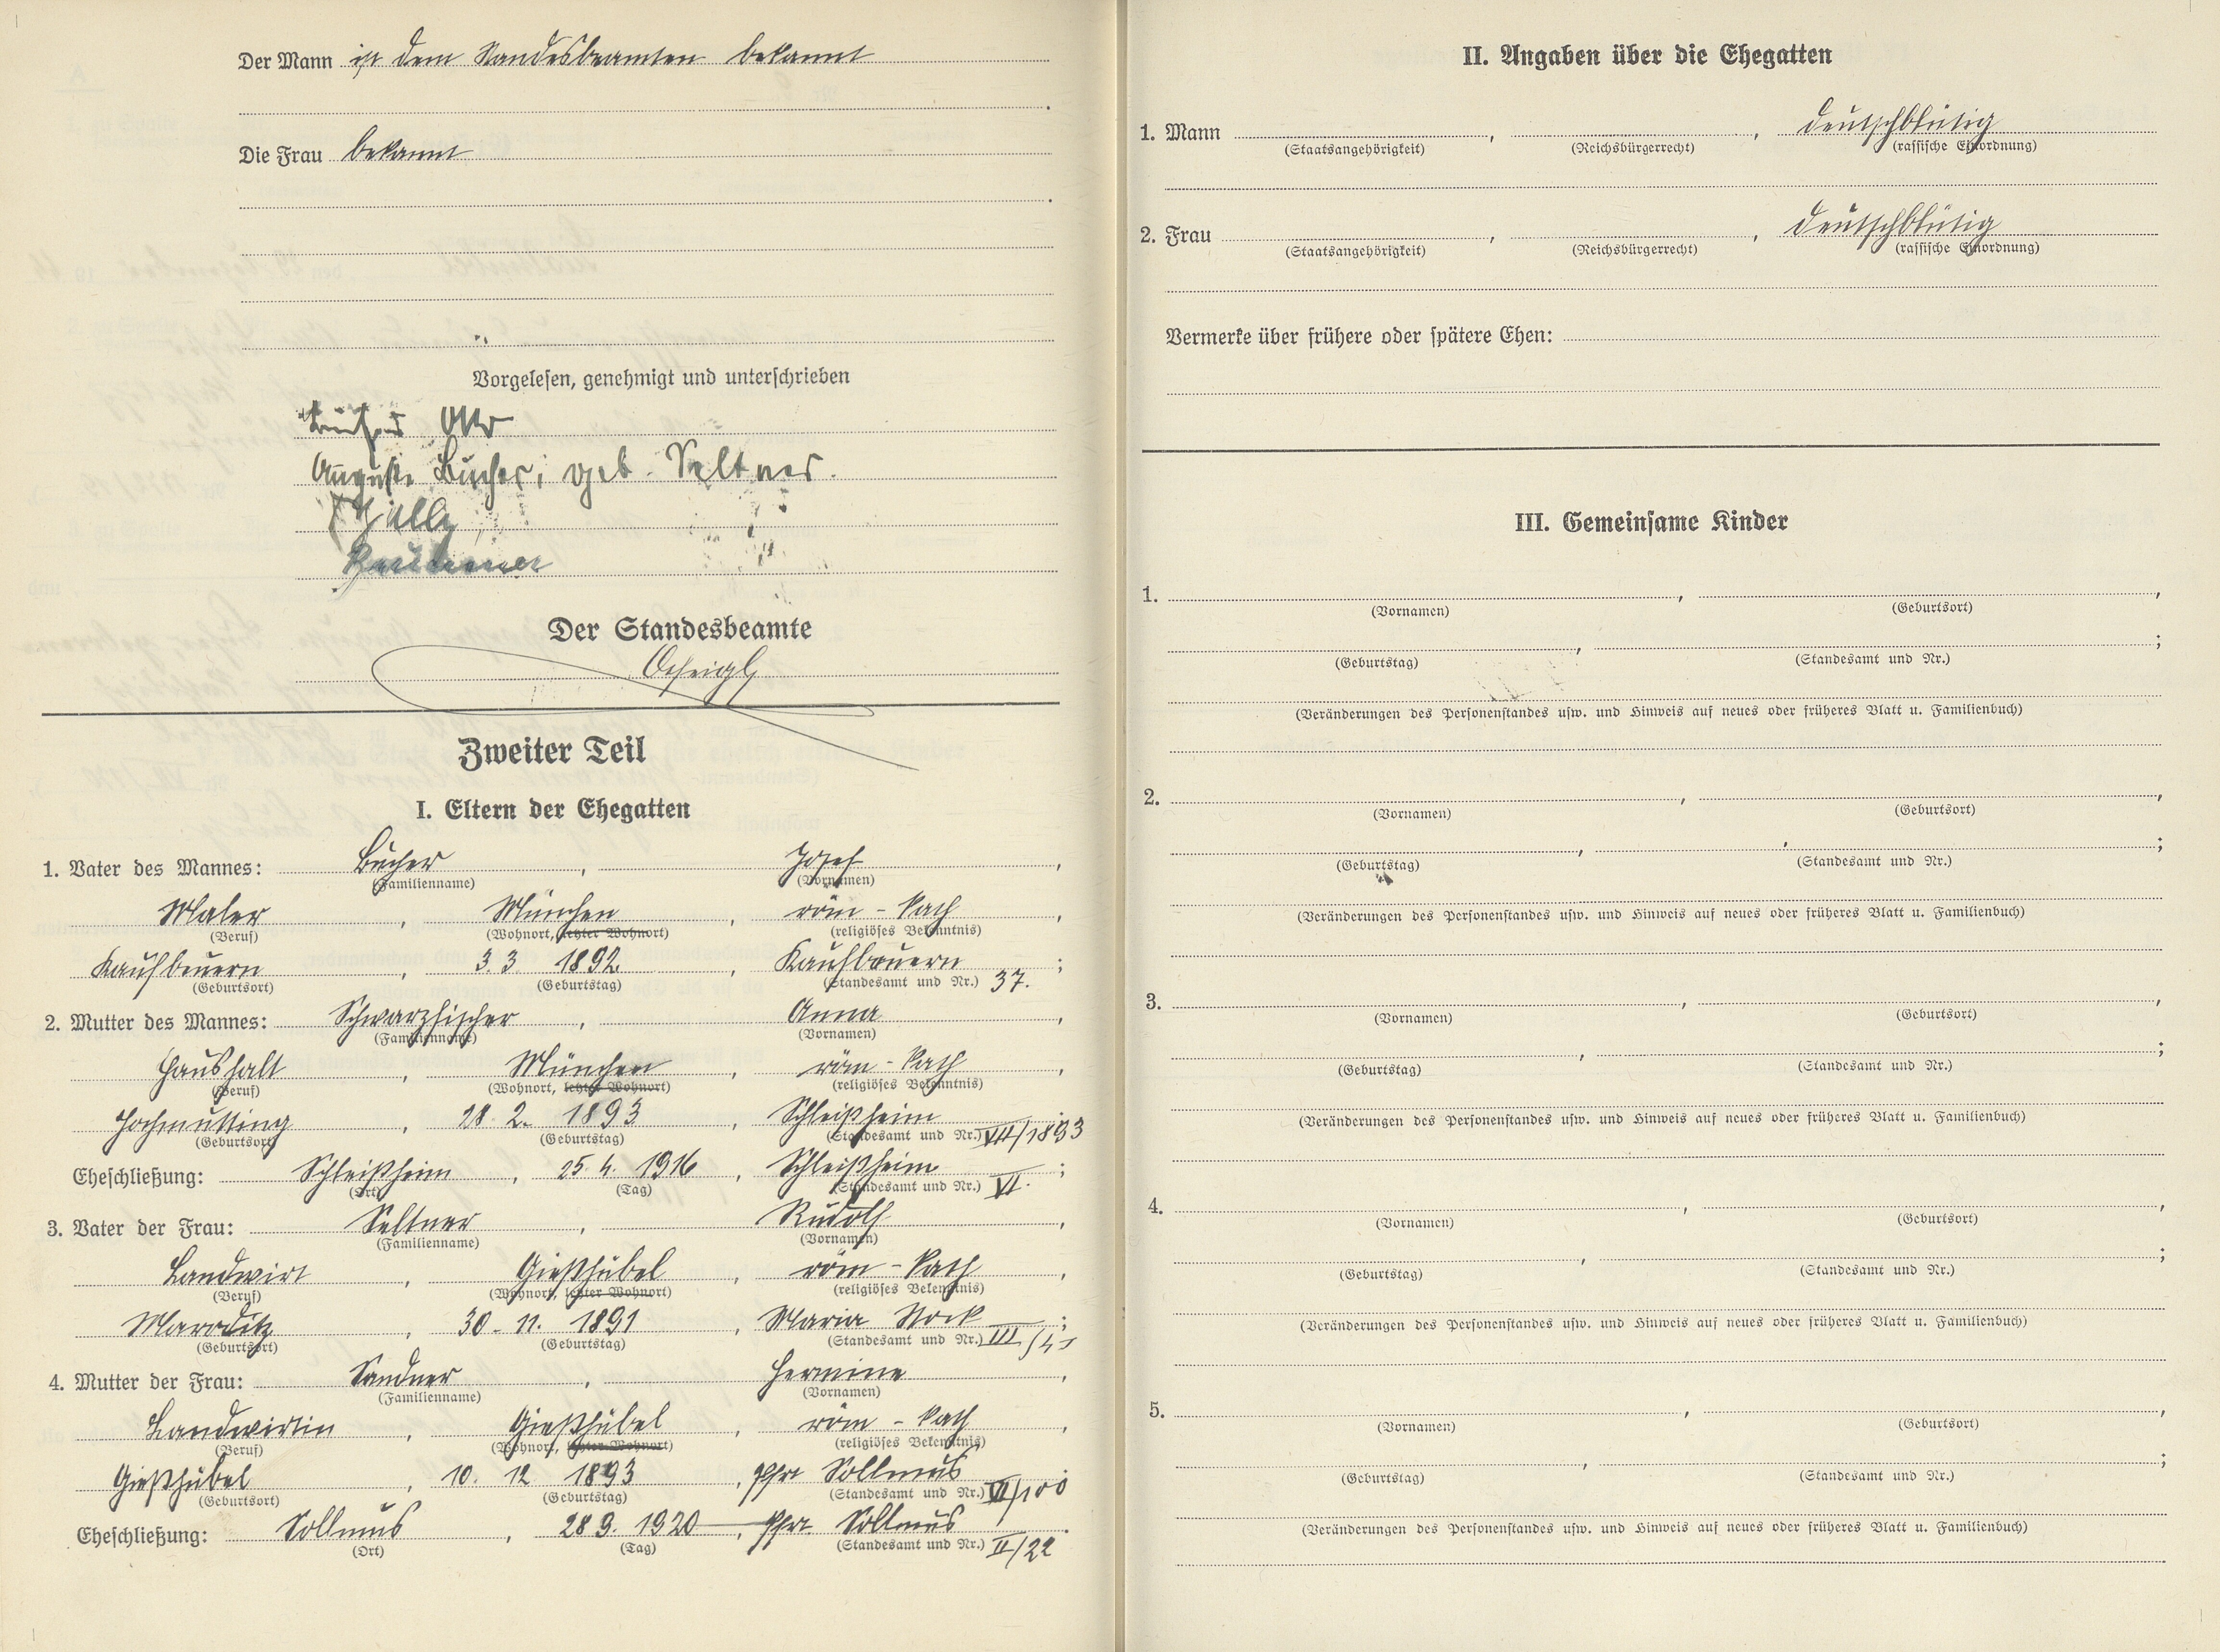 Der Mann ist dem Standesbeamten bekannt
.
Die Frau bekannt
.
Vorgelesen, genehmigt und unterschrieben
Bücher Otto
Auguste Bücher, geb. Seltner.
Der Standesbeamte
Zweiter Teil
I. Eltern der Ehegatten
1. Vater des Mannes: Bücher, Josef,
(Familienname) (Vornamen)
Maler, München, röm-kath,
(Beruf) (Wohnort, letzter Wohnort) (religiöses Bekenntnis)
Kaufbeuern, 3. 3. 1892, Kaufbeuern 37.;
(Geburtsort) (Geburtstag) (Standesamt und Nr.)
2. Mutter des Mannes: Schwarzfischer, Anna,
(Familienname) (Vornamen)
Haushalt, München, röm-kath,
(Beruf) (Wohnort, letzter Wohnort) (religiöses Bekenntnis)
Hochmutting, 28. 2. 1893, Schleißheim VII/1893
(Geburtsort) (Geburtstag) (Standesamt und Nr.)
Eheschließung: Schleißheim, 25. 4. 1916, Schleißheim VI.;
(Ort) (Tag) (Standesamt und Nr.)
3. Vater der Frau: Seltner, Rudolf,
(Familienname) (Vornamen)
Landwirt, Gießhübel, röm-kath,
(Beruf) (Wohnort, letzter Wohnort) (religiöses Bekenntnis)
Maroditz, 30. 11. 1891, Maria Stock III/45;
(Geburtsort) (Geburtstag) (Standesamt und Nr.)
4. Mutter der Frau: Sandner, Hermine,
(Familienname) (Vornamen)
Landwirtin, Gießhübel, röm-kath,
(Beruf) (Wohnort, letzter Wohnort) (religiöses Bekenntnis)
Gießhübel, 10. 12 1893, Pfr Sollmus VI/100;
(Geburtsort) (Geburtstag) (Standesamt und Nr.)
Eheschließung: Sollmus, 28 9. 1920, Pfr Sollmus II/22.
(Ort) (Tag) (Standesamt und Nr.)
II. Angaben über die Ehegatten
1. Mann , , deutschblütig
(Staatsangehörigkeit) (Reichsbürgerrecht) (rassische Einordnung)
2. Frau , , deutschblütig
(Staatsangehörigkeit) (Reichsbürgerrecht) (rassische Einordnung)
Vermerke über frühere oder spätere Ehen:
III. Gemeinsame Kinder
1. , ,
(Vornamen) (Geburtsort)
, ;
(Geburtstag) (Standesamt und Nr.)
(Veränderungen des Personenstandes usw. und Hinweis auf neues oder früheres Blatt u. Familienbuch)
2. , ,
(Vornamen) (Geburtsort)
, ;
(Geburtstag) (Standesamt und Nr.)
(Veränderungen des Personenstandes usw. und Hinweis auf neues oder früheres Blatt u. Familienbuch)
3. , ,
(Vornamen) (Geburtsort)
, ;
(Geburtstag) (Standesamt und Nr.)
(Veränderungen des Personenstandes usw. und Hinweis auf neues oder früheres Blatt u. Familienbuch)
4. , ,
(Vornamen) (Geburtsort)
, ;
(Geburtstag) (Standesamt und Nr.)
(Veränderungen des Personenstandes usw. und Hinweis auf neues oder früheres Blatt u. Familienbuch)
5. , ,
(Vornamen) (Geburtsort)
, ;
(Geburtstag) (Standesamt und Nr.)
(Veränderungen des Personenstandes usw. und Hinweis auf neues oder früheres Blatt u. Familienbuch)